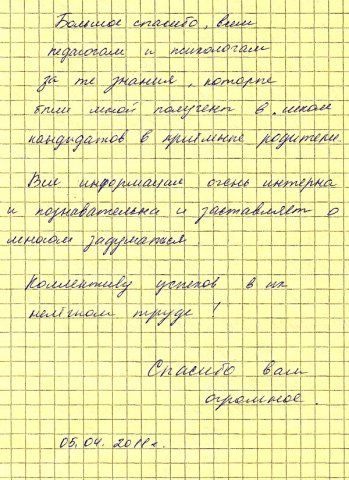 Большое спасибо, всем
педагогам и психологам
за те знания, которые
были мной получены в школе
кандидатов в приёмные родители.
Вся информация очень интерна
и познавательна и заставляет о
многом задуматься.
Коллективу успехов в их
нелёгком труде!
Спасибо вам
огромное.
05.04.2011г.